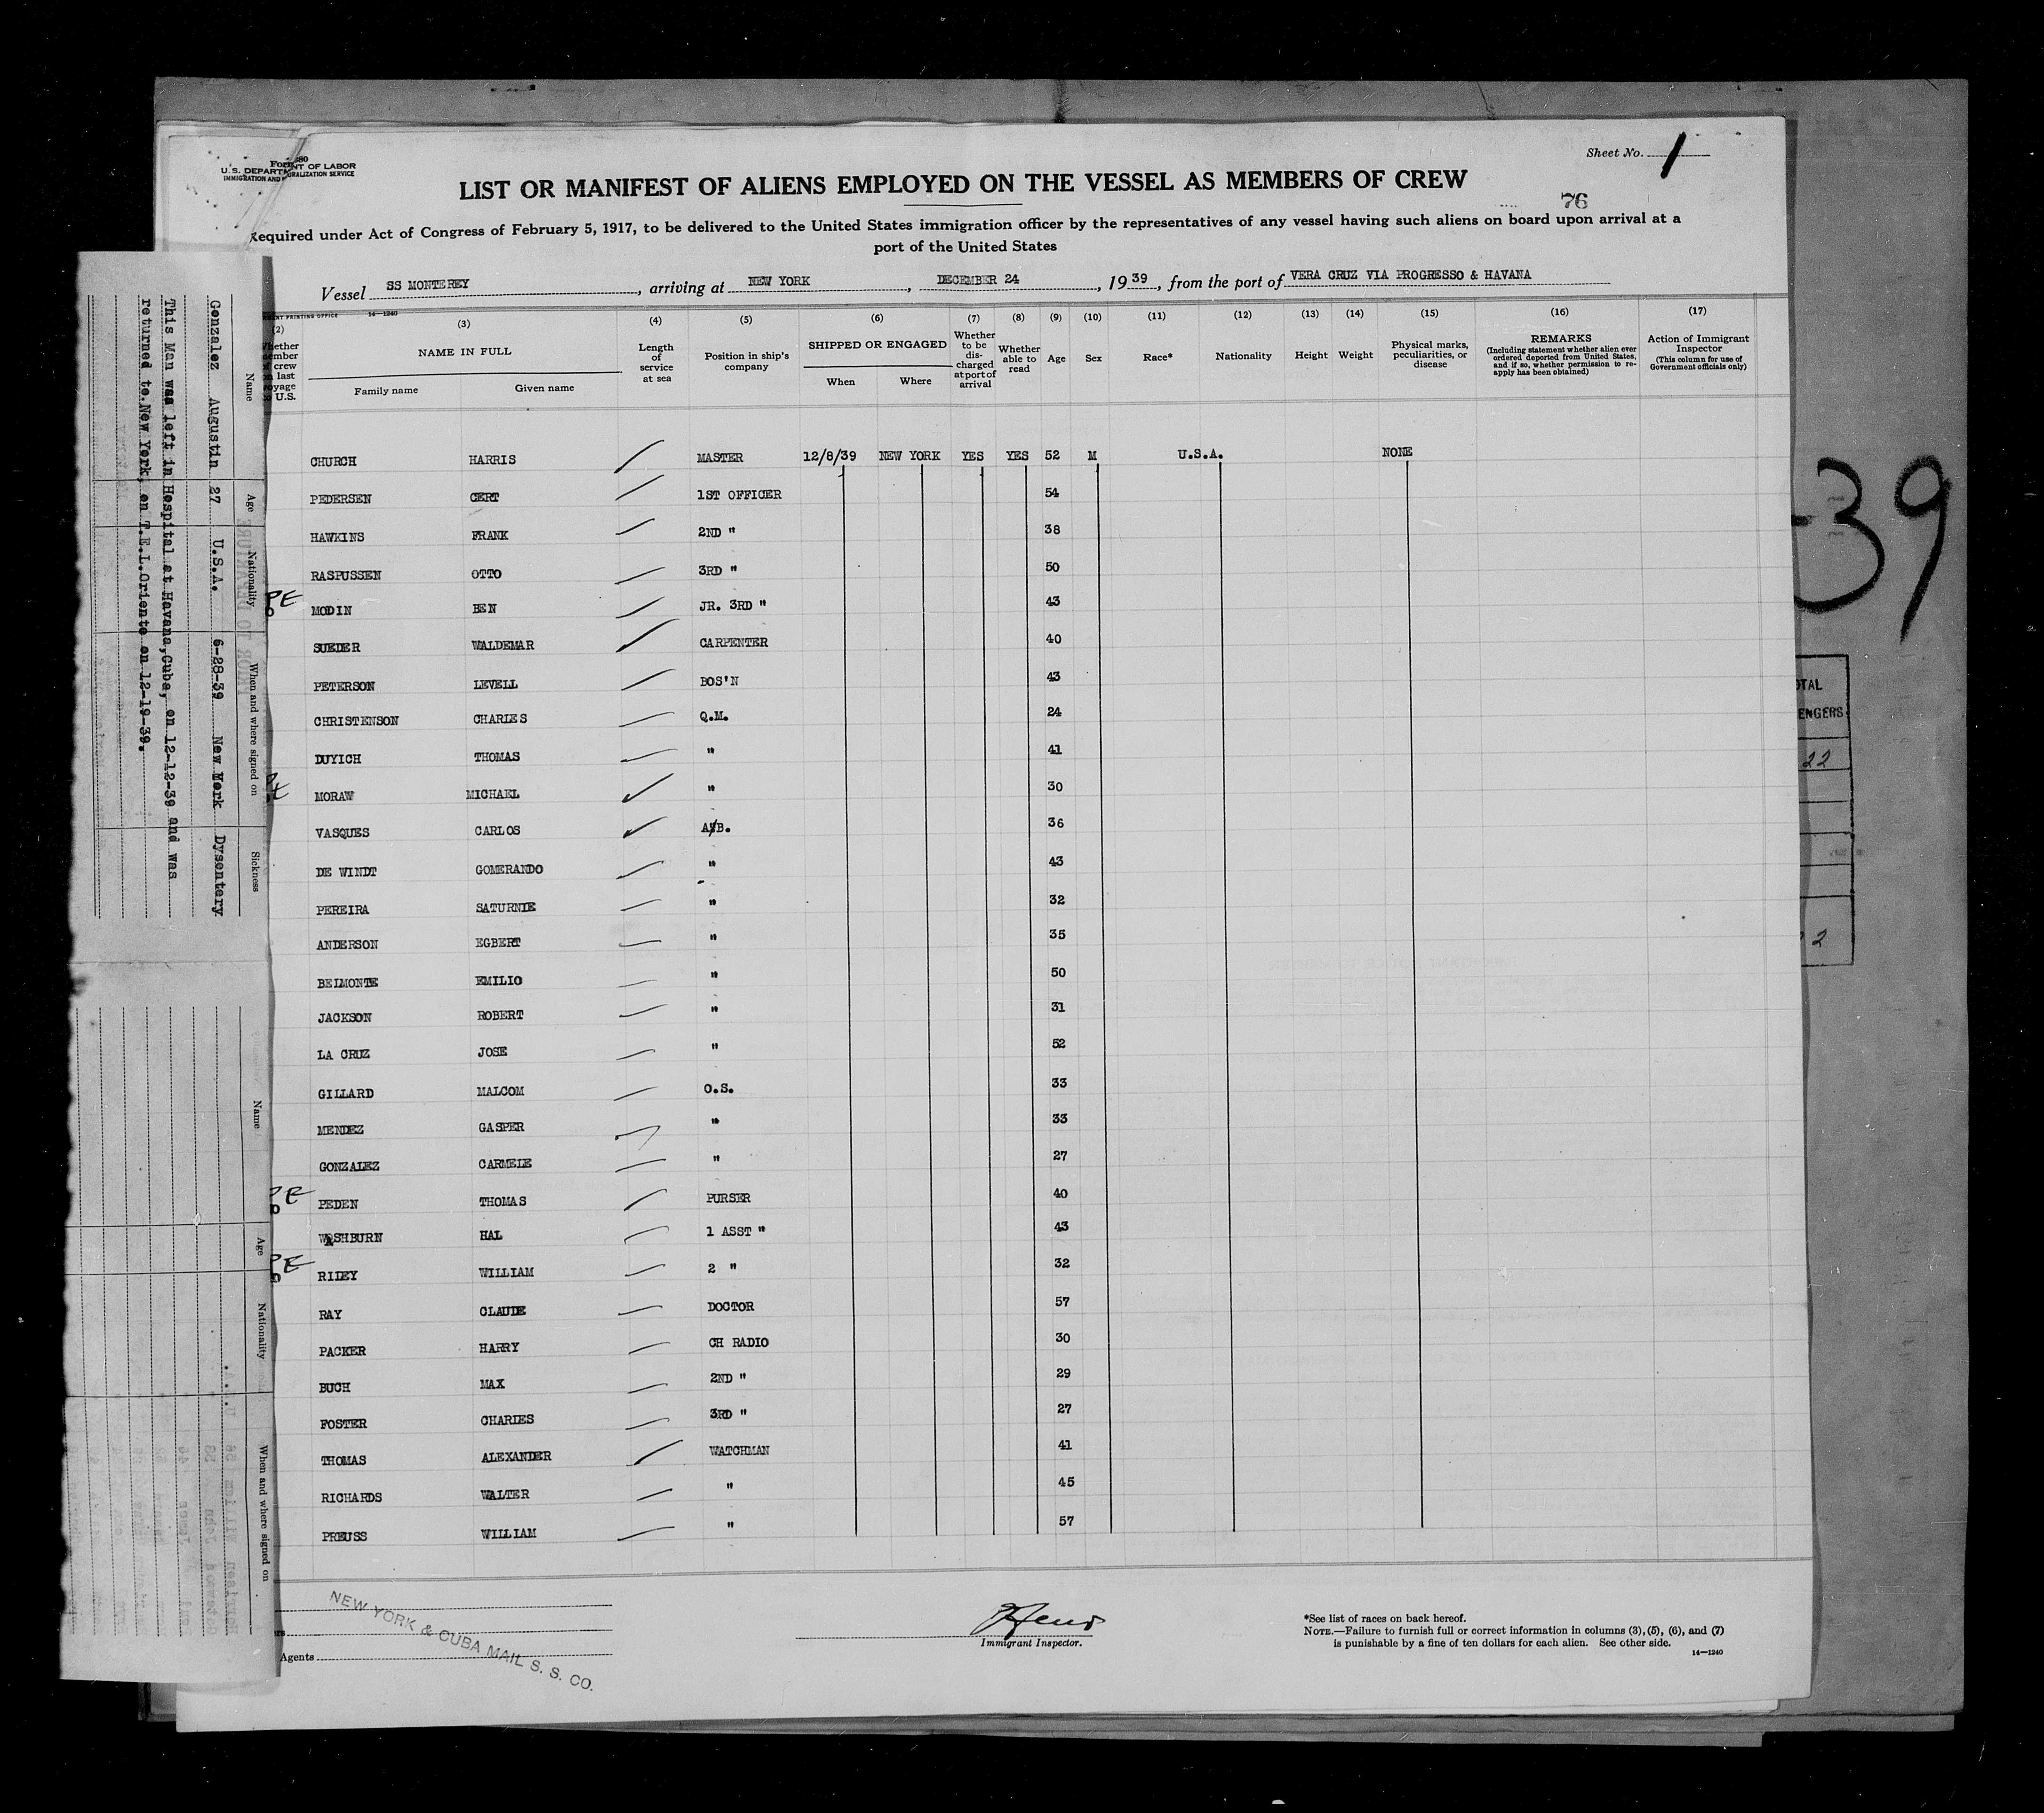 Form 680
U.S. DEPARTMENT OF LABOR
IMMIGRATION AND NATURALIZATION SERVICE
Sheet No. 1
LIST OR MANIFEST OF ALIENS EMPLOYED ON THE VESSEL AS MEMBERS OF CREW
76
Required under Act of Congress of February 5, 1917, to be delivered to the United States immigration officer by the representatives of any vessel having such aliens on board upon arrival at a
port of the United States
Vessel SS MONTEREY, arriving at NEW YORK, DECEMBER 24, 1939, from the port of VERA CRUZ VIA PROGRESSO & HAVANA
PRINTING OFFICE 14—1240
(2) (3) (4) (5) (6) (7) (8) (9) (10) (11) (12) (13) (14) (15) (16) (17)
Whether member of crew on last voyage to U.S.
NAME IN FULL
Family name Given name
Length of service at sea
Position in ship's company
SHIPPED OR ENGAGED
When Where
Whether to be discharged at port of arrival
Whether able to read
Age Sex Race* Nationality Height Weight
Physical marks, peculiarities, or disease
REMARKS
(Including statement whether alien ever ordered deported from United States, and if so, whether permission to re-apply has been obtained)
Action of Immigrant Inspector
(This column for use of Government officials only)
CHURCH HARRIS MASTER 12/8/39 NEW YORK YES YES 52 M U.S.A. NONE
PEDERSEN CERT 1ST OFFICER 54
HAWKINS FRANK 2ND " 38
RASPUSSEN OTTO 3RD " 50
PE MODIN BEN JR. 3RD " 43
SUEDER WALDEMAR CARPENTER 40
PETERSON LEVELL BOS'N 43
CHRISTENSON CHARLES Q.M. 24
DUYICH THOMAS " 41
MORAW MICHAEL " 30
VASQUES CARLOS A/B. 36
DE WINDT GOMERANDO " 43
PEREIRA SATURNIE " 32
ANDERSON EGBERT " 35
BELMONTE EMILIO " 50
JACKSON ROBERT " 31
LA CRUZ JOSE " 52
GILLARD MALCOM O.S. 33
MENDEZ GASPER " 33
GONZALEZ CARMELE " 27
PE PEDEN THOMAS PURSER 40
WASHBURN HAL 1 ASST " 43
PE RILEY WILLIAM 2 " 32
RAY CLAUDE DOCTOR 57
PACKER HARRY CH RADIO 30
BUCH MAX 2ND " 29
FOSTER CHARLES 3RD " 27
THOMAS ALEXANDER WATCHMAN 41
RICHARDS WALTER " 45
PREUSS WILLIAM " 57
NEW YORK & CUBA MAIL S. S. CO.
Agents
Immigrant Inspector.
*See list of races on back hereof.
NOTE.—Failure to furnish full or correct information in columns (3), (5), (6), and (7)
is punishable by a fine of ten dollars for each alien. See other side.
14—1240
Name Age Nationality When and where signed on Sickness
Gonzalez Augustin 27 U.S.A. 6-28-39 New York Dysentery
This Man was left in Hospital at Havana,Cuba, on 12-12-39 and was
returned to New York, on T.E.L.Oriente on 12-19-39.
Name Age Nationality When and where signed on
39
22
2